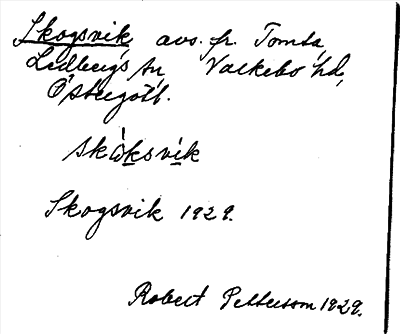 Skogsvik, avs. fr. Tomta,
Ledbergs sn Valkebo hd,
Östergötl.
skωksvik
Skogsvik 1929.
Robert Pettersson 1929.